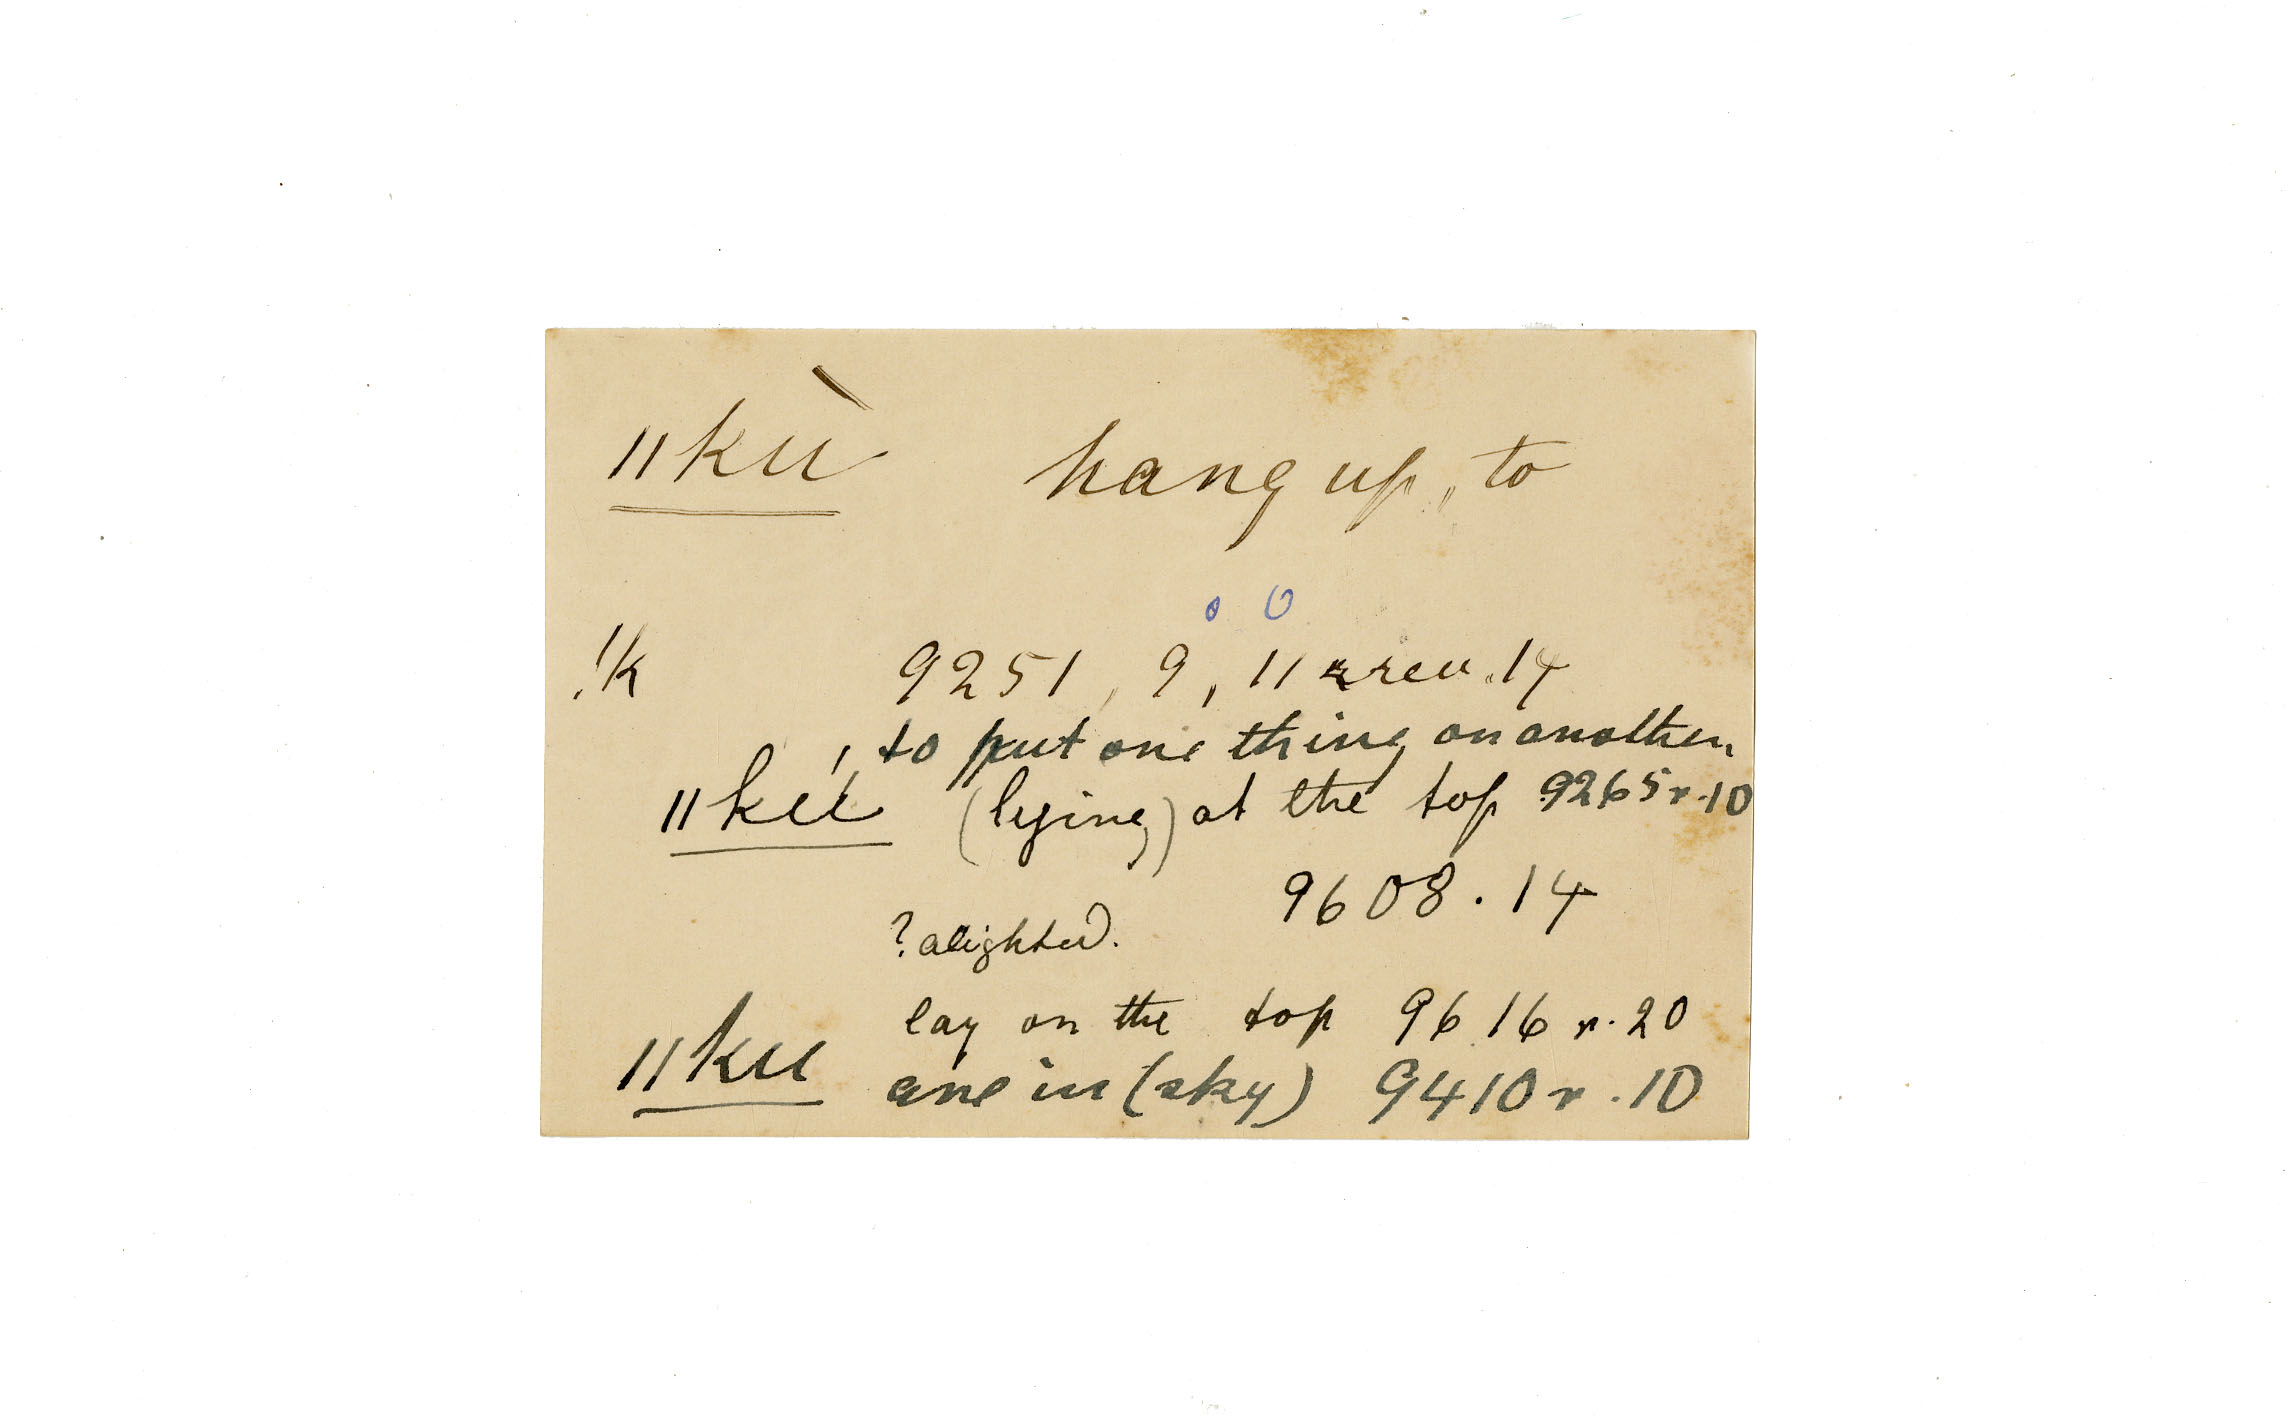 ǁkù hang up, to
o o
!k 9251, 9, 11 rev. 14
to put one thing on another,
ǁkú, (lying) at the top 9265 r. 10
9608. 14
? alighted.
lay on the top 9616 r. 20
ǁku are in (sky) 9410 r. 10